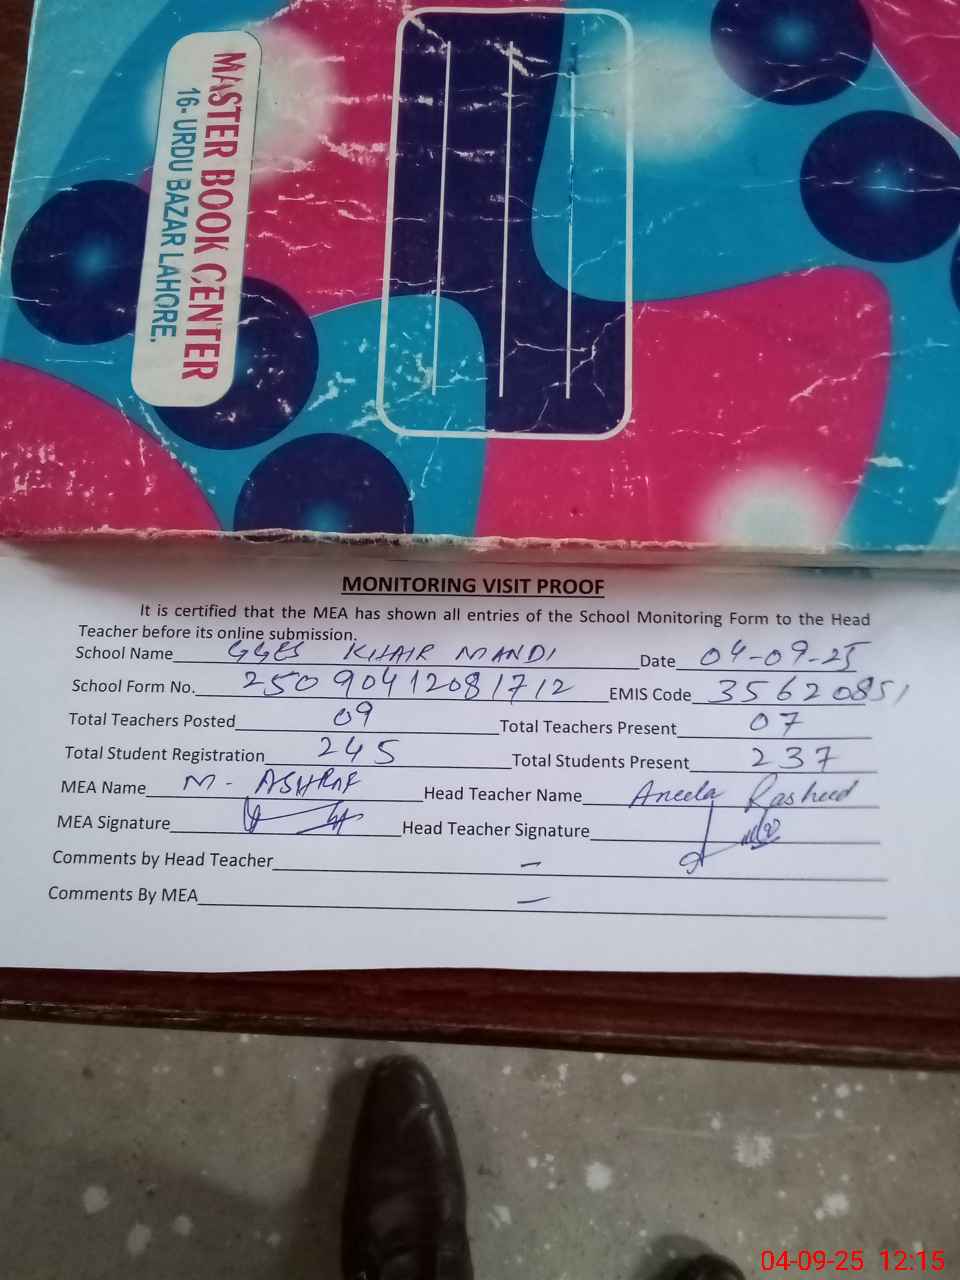 MASTER BOOK CENTER
16- URDU BAZAR LAHORE.
MONITORING VISIT PROOF
It is certified that the MEA has shown all entries of the School Monitoring Form to the Head
Teacher before its online submission.
School Name GGES KHAIR MANDI Date 04-09-25
School Form No. 25090412081712 EMIS Code 35620851
Total Teachers Posted 09 Total Teachers Present 07
Total Student Registration 245 Total Students Present 237
MEA Name M- ASHRAF Head Teacher Name Aneela Rasheed
MEA Signature Head Teacher Signature
Comments by Head Teacher —
Comments By MEA —
04-09-25 12:15